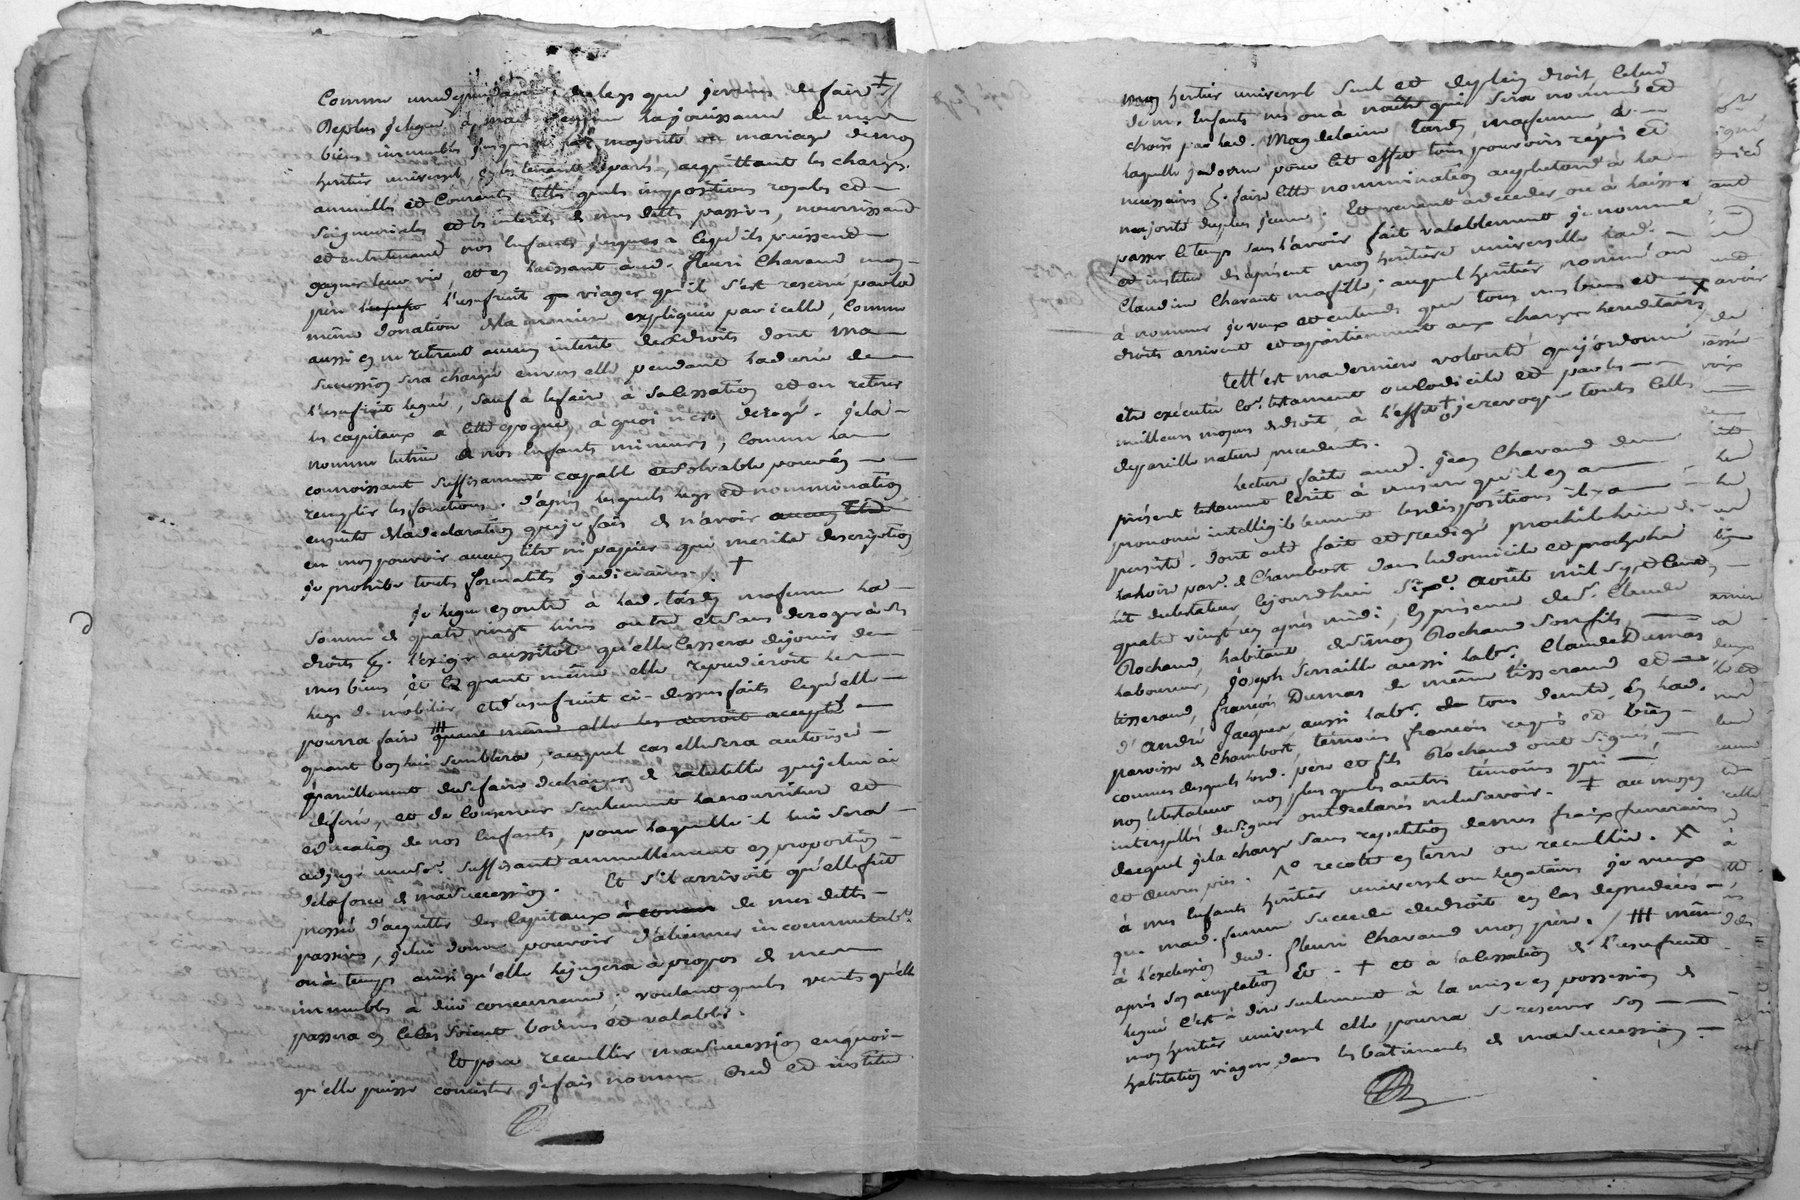 Comme une dependance du legs que je viens de faire ‡
Deplus je legue à mad. femme la jouissance de mes
biens immeubles jusques à la majorité ou mariage de mon
heritier universel, en les tenant reparés, acquittant les charges
annuelles et courantes telles que les impositions royales et
seigneuriales et les interets de mes dettes passives, nourrissant
et entretenant nos enfants jusques a ce qu'ils puissent
gagner leur vie, et en laissant aud. fleuri Chavand mon
pere l'usufruit viager qu'il s'est reservé par la
même donation de la maniere expliquée par icelle, comme
aussi en ne retirant aucun interet des droits dont ma
succession sera chargée envers elle pendant la durée de
l'usufruit legué, sauf à le faire à sa cessation et en retirer
les capitaux à cette epoque, à quoi n'est derogé. je la
nomme tutrice de nos enfants mineurs, comme la
connoissant suffisamment capable et solvable pour en
remplir les fonctions. d'après lesquels legs et nomination
ensuite de la declaration que je fais de n'avoir aucun titre
en mon pouvoir aucun titre ni papier qui merite description
je prohibe toutes formalités judiciaires. †
je legue en outre à lad. tardy ma femme la
somme de quatre vingt livres outre et sans deroger à ses
droits &. l'exiger aussitôt qu'elle cessera de jouir de
mes biens, et quant même elle repudieroit le
legs de mobilier et d'usufruit ci-dessus faits ce qu'elle
pourra faire ⧻ quant même elle les auroit accepté
quant bon lui semblera, auquel cas elle sera autorisée
pareillement de se faire decharger de la tutelle que je lui ai
deferée, et de conserver seulement la nourriture et
education de nos enfants, pour laquelle il lui sera
adjugé une so.e suffisante annuellement en proportion
de la force de ma succession. Et s'il arrivoit qu'elle fut
pressé d'acquitter des capitaux de mes dettes
passives, je lui donne pouvoir d'aliener incommutabl.t
ou à temps ainsi qu'elle le jugera à propos de mes
immeubles à due concurrence; voulant que les ventes qu'elle
passera en ce cas soient bonnes et valables.
Et pour recueillir ma succession en quoi
qu'elle puisse consister je fais nomme crée et institue
mon heritier universel seul et de plein droit celui
de m. enfants nés ou à naitre qui sera nommé et
choisi par lad. Magdelaine tardy ma femme à
laquelle je donne pour cet effet tous pouvoirs requis et
necessaires &. faire cette nomination
majorité du plus jeune. Et venant à deceder ou à laisser
passer le temps sans l'avoir fait valablement je nomme
et institue dès à présent mon heritiere universelle lad.
Claudine Chavant ma fille; auquel heritier nommé ou
à nommer je veux et entends que tous mes biens et
droits arrivent et appartiennent aux charges hereditaires X
tell'est ma derniere volonté que j'ordonne
etre exécutée co.e testament ou codicile et par les
meilleurs moyens de droit, à l'effet de quoi je revoque toutes celles
de pareille nature precedentes.
Lecture faite aud. jean Chavand du
présent testament ecrit à mesure qu'il en a
prononcé intelligiblement les dispositions il y a
persisté. dont acte fait et redigé
par. de Chambost dans le domicile et proche le
lit du testateur, cejourdhui six.e août mil sept cent
quatre vingt un après midi; En présence de S. Claude
Rochand, habitant, de Simon Rochand son fils,
laboureur, joseph Serraille aussi labr. Claude Dumas
tisserand, françois Dumas de même tisserand et
d'andré Jacquet aussi labr. tous dem.t. En lad.
paroisse de Chambost, témoins françois requis et bien
connus desquels lesd. père et fils Rochand ont signé
non le testateur non plus que les autres témoins qui
interpellés de signer ont declaré ne le savoir. ‡ au moyen
duquel je la charge sans repetition de mes fraix funeraires
et œuvres pies. recolte en terre ou recueillie. X
à mes enfants heritier universel ou legataires je veux
que mad. femme succede de droit en cas de prédécès
à l'exclusion dud. fleuri Chavand mon père. / ⧻ même
après son acceptation Et. † et à la cessation de l'usufruit
legué c'est à dire seulement à la mise en possession de
mon heritier universel elle pourra se reserver son
habitation viagere dans les batiments de ma succession.